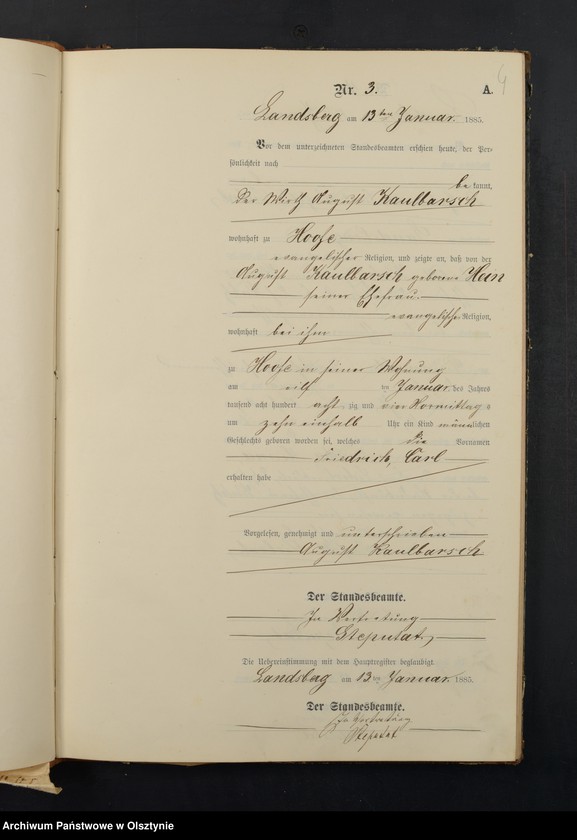 4
Nr. 3.
A.
Landsberg am 13ten Januar 1885.
Vor dem unterzeichneten Standesbeamten erschien heute, der Per-
sönlichkeit nach
be kannt,
der Wirth August Kaulbarsch
wohnhaft zu Hoofe
evangelischer Religion, und zeigte an, daß von der
August Kaulbarsch geborene
seiner Ehefrau
evangelischer Religion,
wohnhaft bei ihm
zu Hoofe in seiner Wohnung
am elf ten Januar des Jahres
tausend acht hundert acht zig und vier Vormittag s
um zehn einhalb Uhr ein Kind männlichen
Geschlechts geboren worden sei, welches die Vornamen
Friedrich, Carl
erhalten habe
Vorgelesen, genehmigt und unterschrieben
August Kaulbarsch
Der Standesbeamte.
In Vertretung
Steputat
Die Uebereinstimmung mit dem Hauptregister beglaubigt.
Landsberg am 13ten Januar 1885.
Der Standesbeamte.
In Vertretung
Steputat
Archiwum Państwowe w Olsztynie